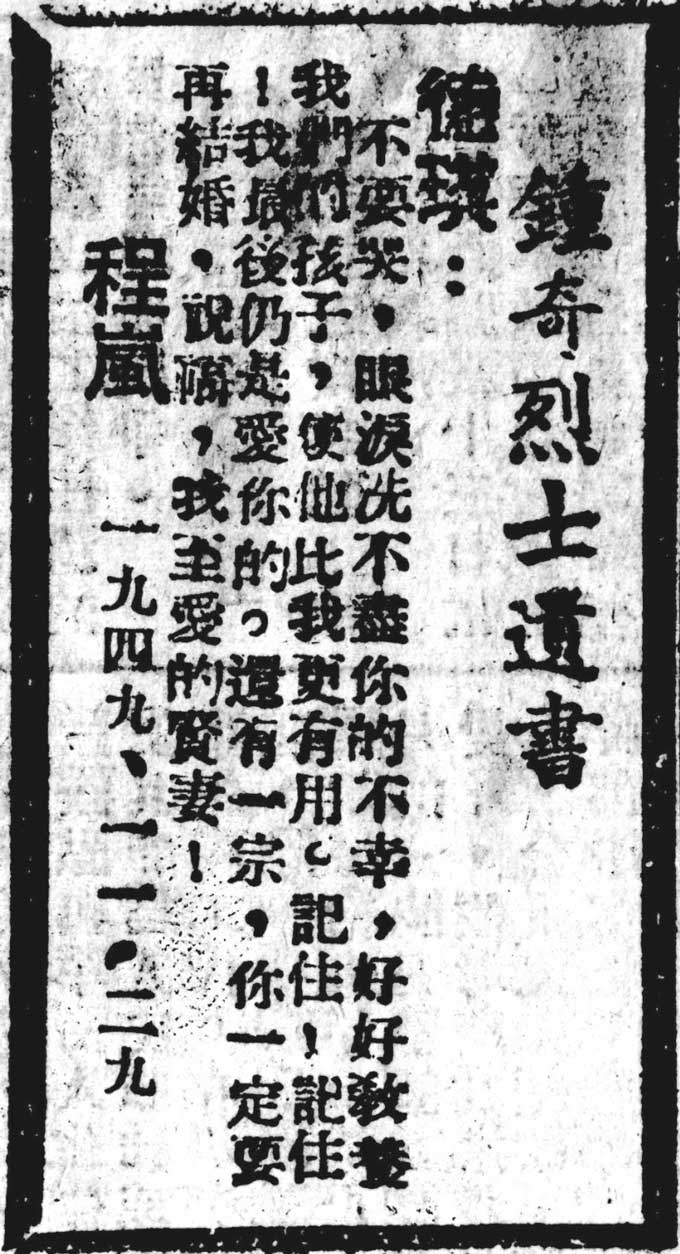 鍾奇烈士遺書
德琪：
不要哭，眼淚洗不盡你的不幸，好好敎養
我們的孩子，使他比我更有用。記住！記住
！我最後仍是愛你的。還有一宗，你一定要
再結婚，祝福，我至愛的賢妻！
程嵐 一九四九、一一．二九